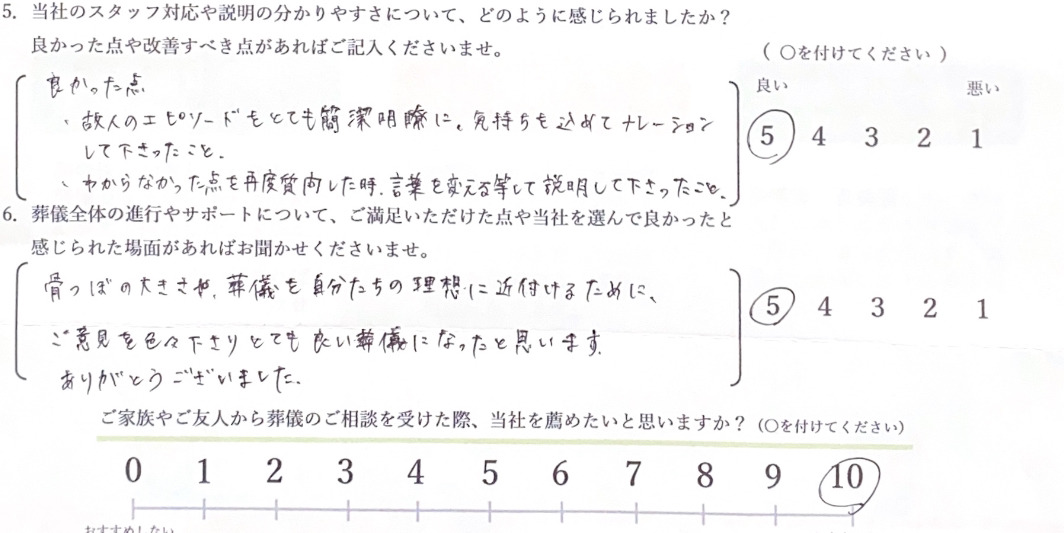 5. 当社のスタッフ対応や説明の分かりやすさについて、どのように感じられましたか？
良かった点や改善すべき点があればご記入くださいませ。
（ 〇を付けてください ）
良い 悪い
良かった点
・故人のエピソードもとても簡潔明瞭に。気持ちも込めてナレーション
して下さったこと。
・わからなかった点を再度質問した時、言葉を変える等して説明して下さったこと。
5 4 3 2 1
6. 葬儀全体の進行やサポートについて、ご満足いただけた点や当社を選んで良かったと
感じられた場面があればお聞かせくださいませ。
骨つぼの大きさや、葬儀を自分たちの理想に近付けるために、
ご意見を色々下さりとても良い葬儀になったと思います。
ありがとうございました。
5 4 3 2 1
ご家族やご友人から葬儀のご相談を受けた際、当社を薦めたいと思いますか？（〇を付けてください）
0 1 2 3 4 5 6 7 8 9 10
おすすめしたい